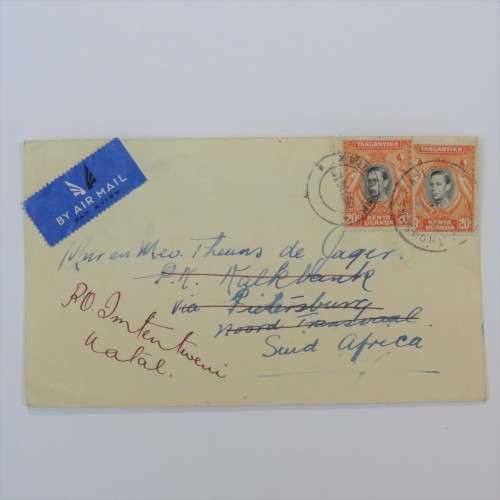 BY AIR MAIL
PAR AVION
TANGANYIKA
KENYA
UGANDA
20
TANGANYIKA
KENYA
UGANDA
20
Mnr en Mev. Theuns de Jager.
P.K. Kalkbank
via Pietersburg
Noord Transvaal
Suid Africa
P.O. Imtentweni
Natal.